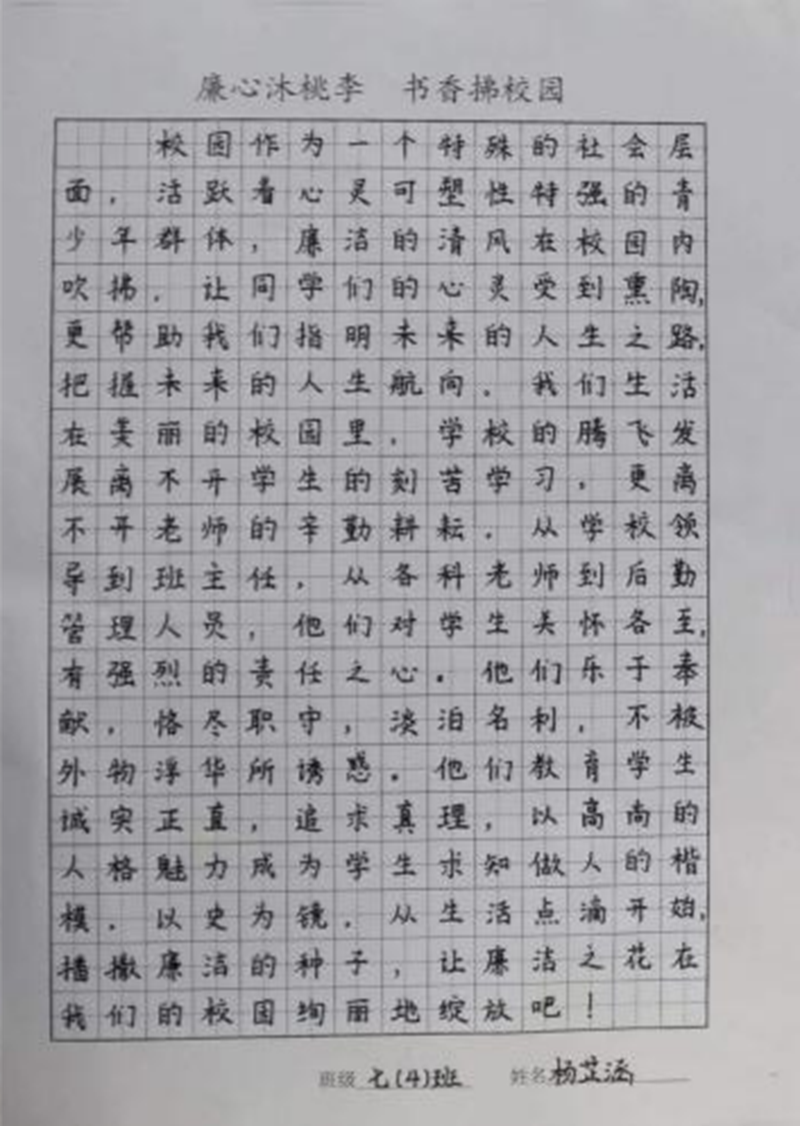 廉心沐桃李 书香拂校园
校园作为一个特殊的社会层
面，活跃着心灵可塑性特强的青
少年群体，廉洁的清风在校园内
吹拂，让同学们的心灵受到熏陶，
更帮助我们指明未来的人生之路，
把握未来的人生航向。我们生活
在美丽的校园里，学校的腾飞发
展离不开学生的刻苦学习，更离
不开老师的辛勤耕耘。从学校领
导到班主任，从各科老师到后勤
管理人员，他们对学生关怀各至，
有强烈的责任之心。他们乐于奉
献，恪尽职守，淡泊名利，不极
外物浮华所诱惑。他们教育学生
诚实正直，追求真理，以高尚的
人格魅力成为学生求知做人的楷
模。以史为镜，从生活点滴开始，
播撒廉洁的种子，让廉洁之花在
我们的校园绚丽地绽放吧！
班级 七(4)班 姓名 杨芷涵